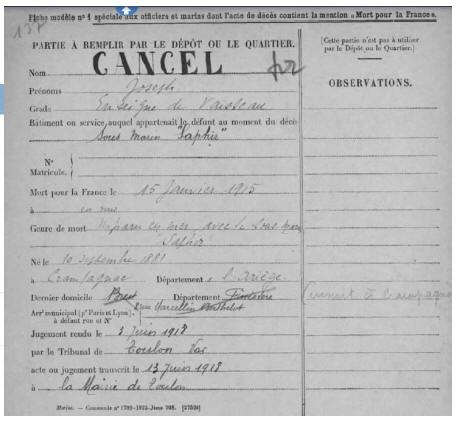 Fiche modèle nº 1 spéciale aux officiers et marins dont l'acte de décès contient la mention « Mort pour la France ».
137
PARTIE À REMPLIR PAR LE DÉPÔT OU LE QUARTIER.
Nom CANCEL
Prénoms Joseph
Grade Enseigne de Vaisseau
Bâtiment ou service, auquel appartenait le défunt au moment du décè
Sous Marin "Saphir"
Nº
Matricule.
Mort pour la France le 15 Janvier 1915
à en mer
Genre de mort Disparu en mer avec le Sous marin
"Saphir"
Né le 10 septembre 1881
à Crampagnac Département : l'Ariège
Dernier domicile Brest Département Finistère
Arrᵗ municipal (pʳ Paris et Lyon), rue Marcellin Berthelot
à défaut rue et Nº
Jugement rendu le 3 Juin 1918
par le Tribunal de Toulon Var
acte ou jugement transcrit le 13 Juin 1918
à la Mairie de Toulon
Marine. — Commande nº 1789-1922-Jõuve 708. [27524]
[Cette partie n'est pas à utiliser
par le Dépôt ou le Quartier.]
OBSERVATIONS.